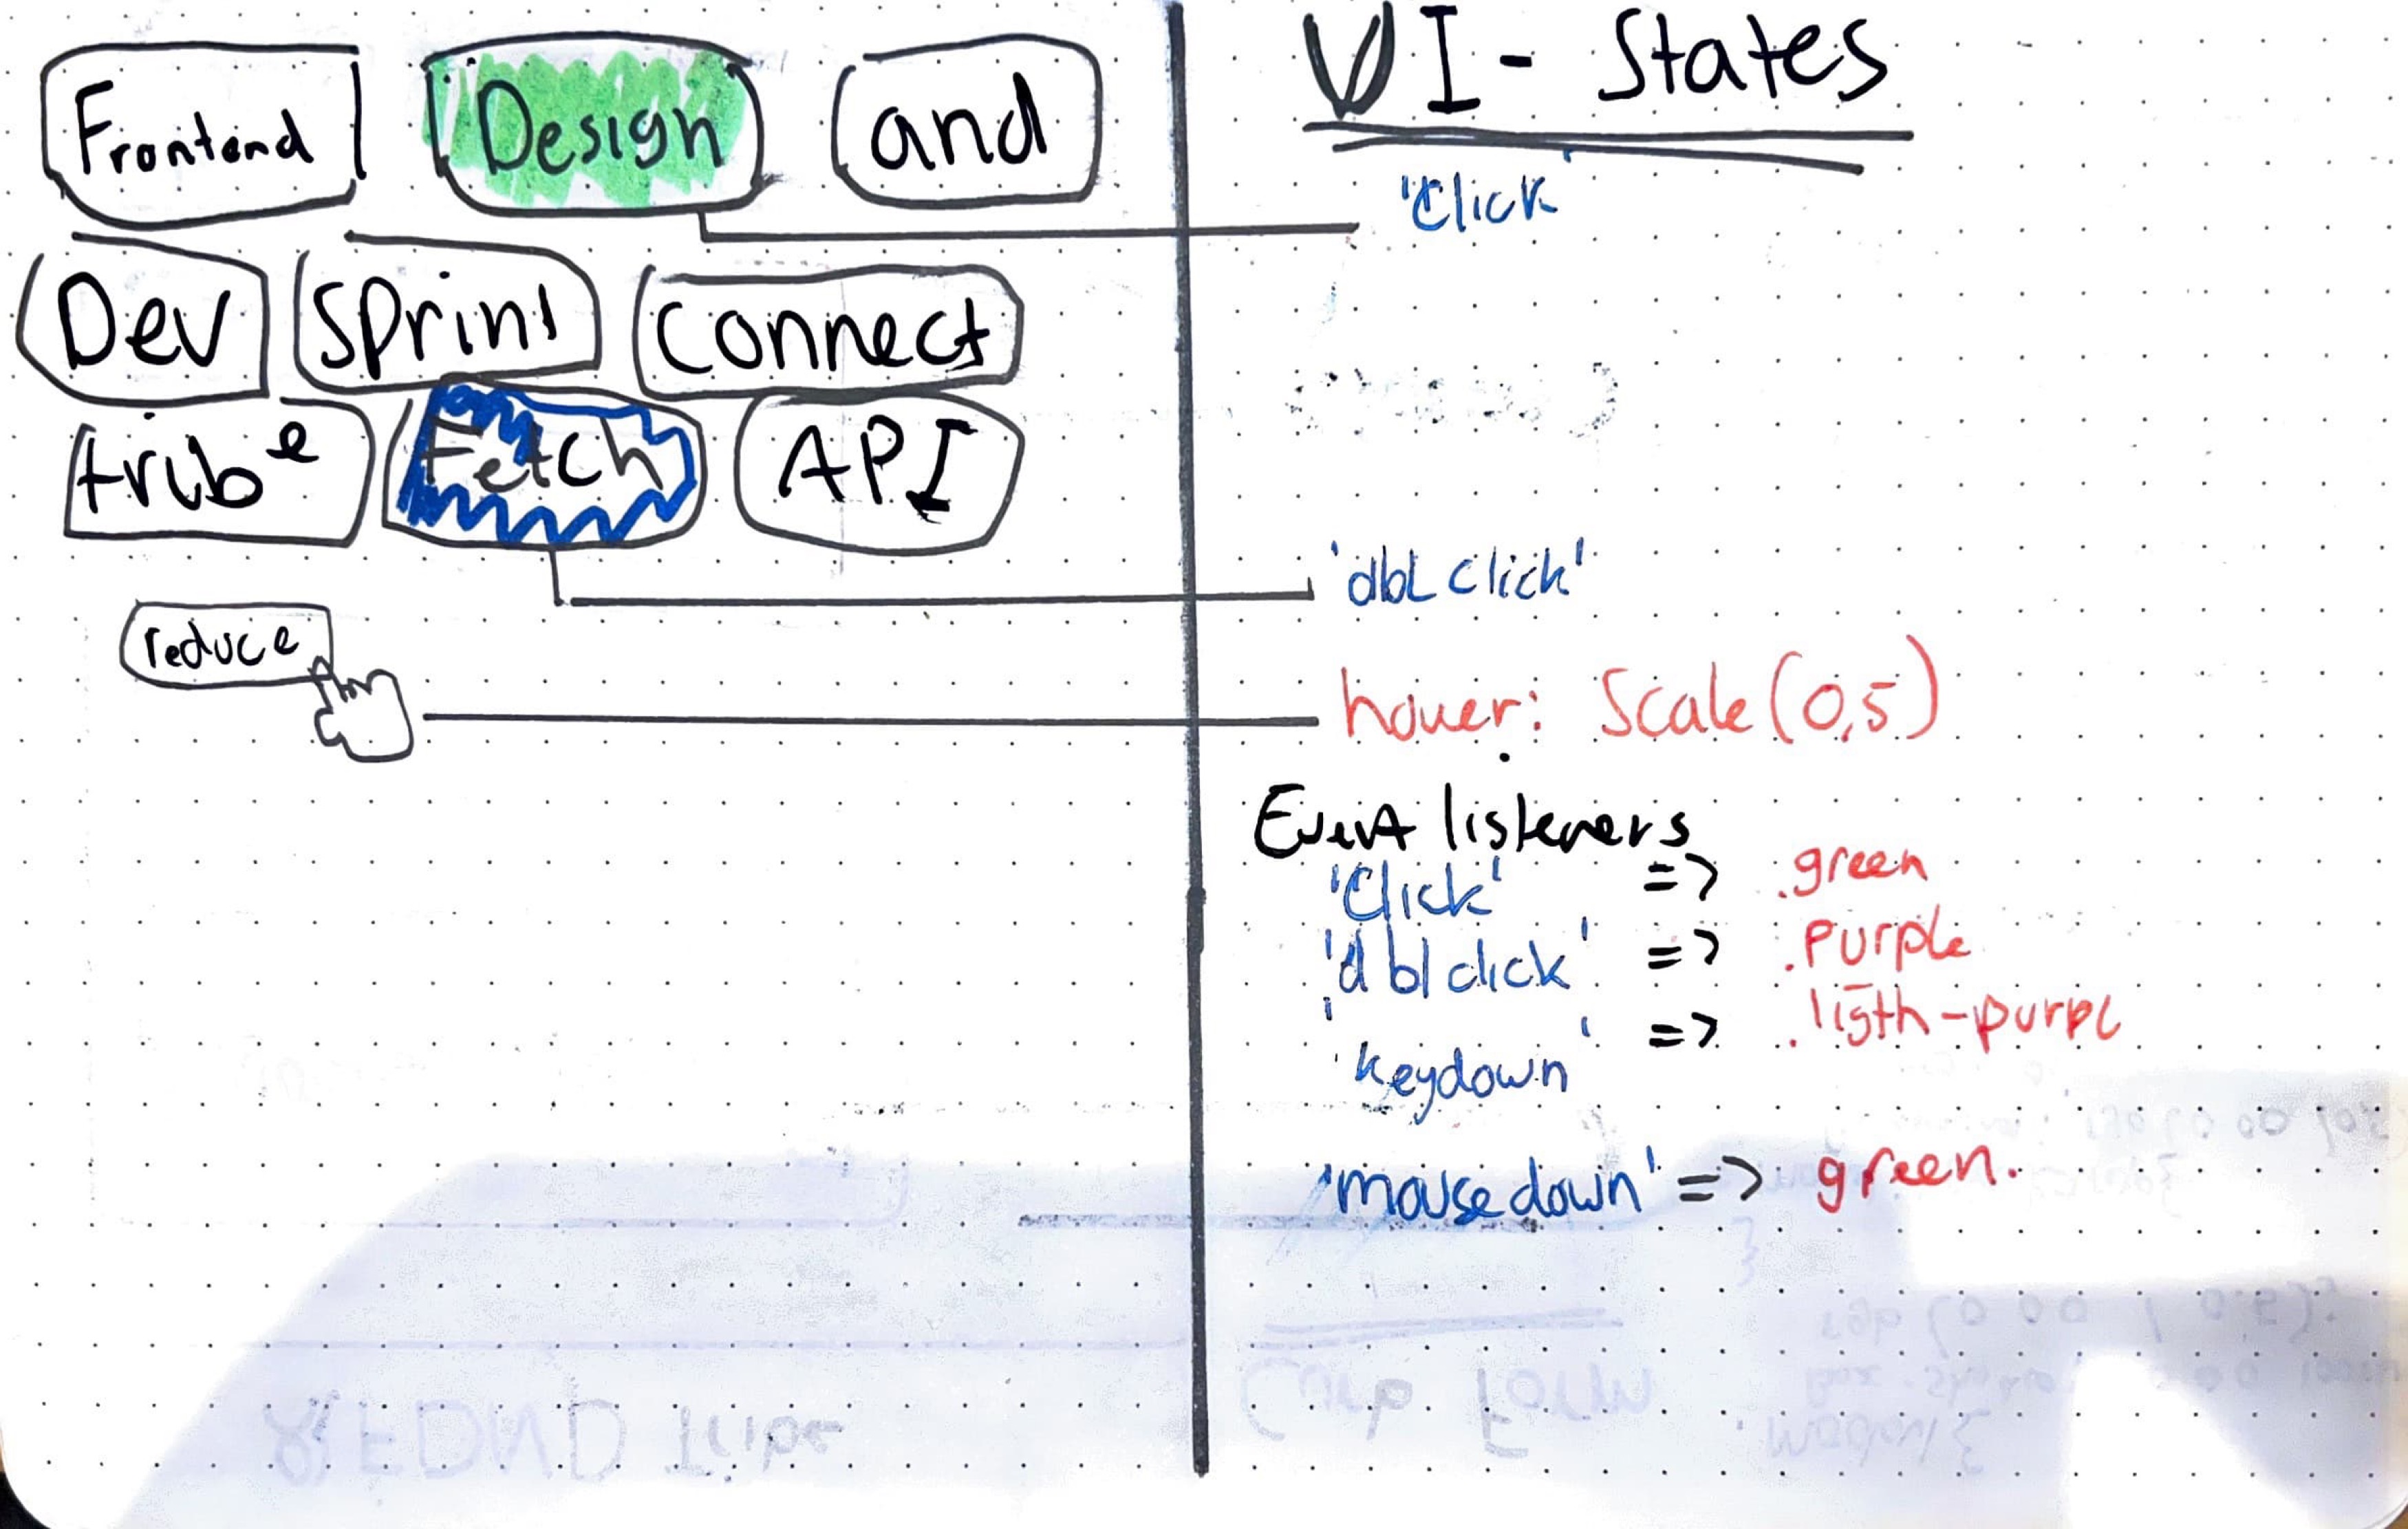 Frontend Design and
Dev Sprint connect
tribe Fetch API
reduce
UI - States
'Click'
'dbl click'
hover: Scale(0,5)
Event listeners
'Click' => .green
'dblclick' => .purple
'keydown' => .ligth-purpl
'mousedown' => green.